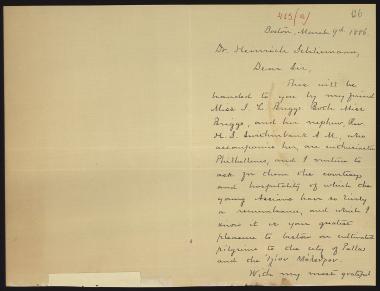 413(a)
Boston, March 9th 1886.
Dr. Heinrich Schliemann,
Dear Sir,
This will be
handed to you by my friend
Miss I. L. Briggs. Both Miss
Briggs, and her nephew, Rev.
H. S. A.M., who
accompanies her, are enthusiastic
Philhellenes, and I venture to
ask for them the courtesy
and hospitality of which the
young have so lively
a remembrance, and which I
know it is your greatest
pleasure to bestow on cultivated
pilgrims to the city of Pallas
and the
With my most grateful